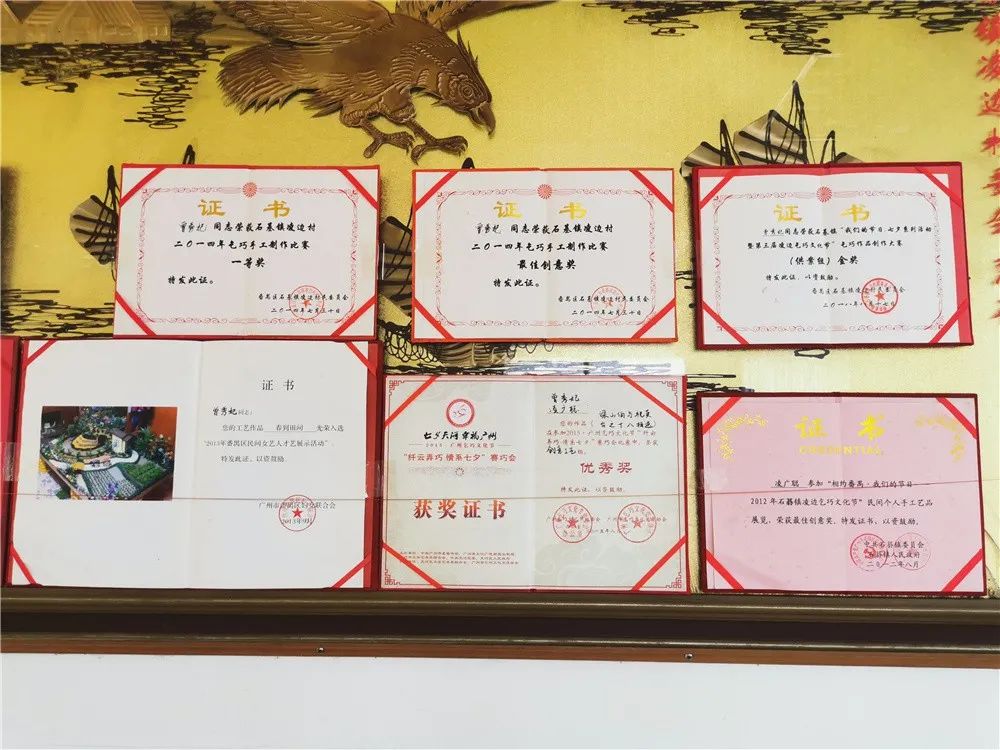 证书
曾秀妃 同志荣获石碁镇凌边村
二〇一四年乞巧手工制作比赛
一等奖
特发此证。
番禺区石碁镇凌边村民委员会
二〇一四年七月三十日
证书
曾秀妃 同志荣获石碁镇凌边村
二〇一四年乞巧手工制作比赛
最佳创意奖
特发此证。
番禺区石碁镇凌边村民委员会
二〇一四年七月三十日
证书
曾秀妃同志荣获石碁镇“我们的节日·七夕系列活动
暨第三届凌边乞巧文化节”乞巧作品创作大赛
(供案组)金奖
特发此证,以资鼓励。
番禺区石碁镇凌边村民委员会
证书
曾秀妃同志:
您的工艺作品 春到田间 光荣入选
“2013年番禺区民间女艺人才艺展示活动”,
特发此证,以资鼓励。
广州市番禺区妇女联合会
2013年9月
七夕天河 幸福广州
2015·广州乞巧文化节
“纤云弄巧 情系七夕”赛巧会
获奖证书
曾秀妃
您的作品
在参加2015·广州乞巧文化节“纤云
弄巧·情系七夕”赛巧会比赛中,荣获
优秀奖
特发此证,以资鼓励。
证书
CREDENTIAL
凌广聪 参加“相约番禺·我们的节日——
2012年石碁镇凌边乞巧文化节”民间个人手工艺品
展览,荣获最佳创意奖,特发证书,以资鼓励。
中共石碁镇委员会
石碁镇人民政府
二〇一二年八月